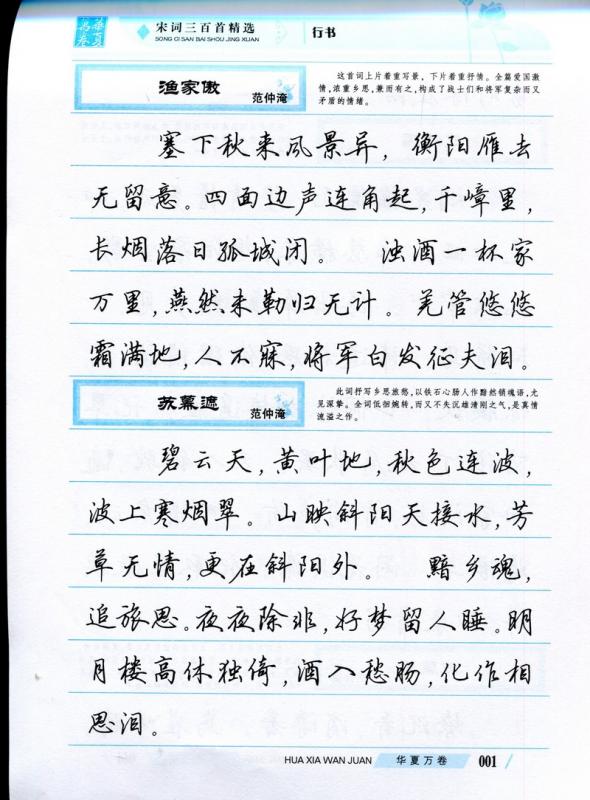 华夏
万卷
宋词三百首精选
SONG CI SAN BAI SHOU JING XUAN
行书
渔家傲
范仲淹
这首词上片着重写景，下片着重抒情。全篇爱国激
情，浓重乡思，兼而有之，构成了战士们和将军复杂而又
矛盾的情绪。
塞下秋来风景异，衡阳雁去
无留意。四面边声连角起，千嶂里，
长烟落日孤城闭。 浊酒一杯家
万里，燕然未勒归无计。羌管悠悠
霜满地，人不寐，将军白发征夫泪。
苏幕遮
范仲淹
此词抒写乡思旅愁，以铁石心肠人作黯然销魂语，尤
见深挚。全词低徊婉转，而又不失沉雄清刚之气，是真情
流溢之作。
碧云天，黄叶地，秋色连波，
波上寒烟翠。山映斜阳天接水，芳
草无情，更在斜阳外。 黯乡魂，
追旅思。夜夜除非，好梦留人睡。明
月楼高休独倚，酒入愁肠，化作相
思泪。
HUA XIA WAN JUAN
华夏万卷
001